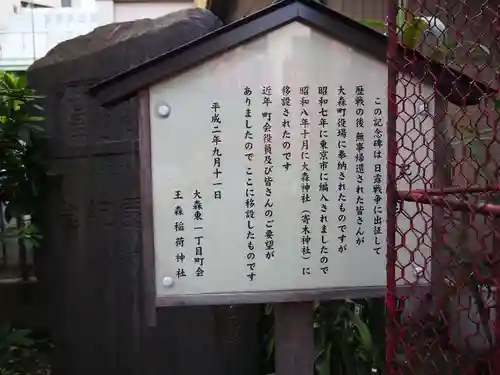 この記念碑は 日露戦争に出征して
歴戦の後 無事帰還された皆さんが
大森町役場に奉納されたものですが
昭和七年に東京市に編入されましたので
昭和八年十月に大森神社（寄木神社）に
移設されたのです
近年 町会役員及び皆さんのご要望が
ありましたので ここに移設したものです
平成二年九月十一日
大森東一丁目町会
王森稲荷神社